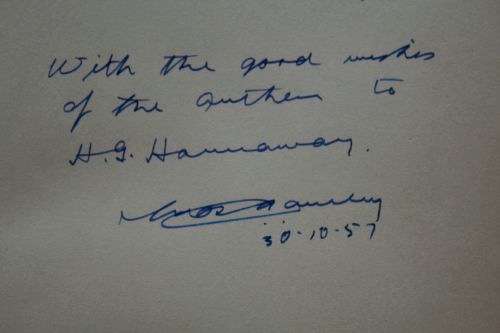 With the good wishes
of the Author to
H.G. Hannaway.
30-10-57